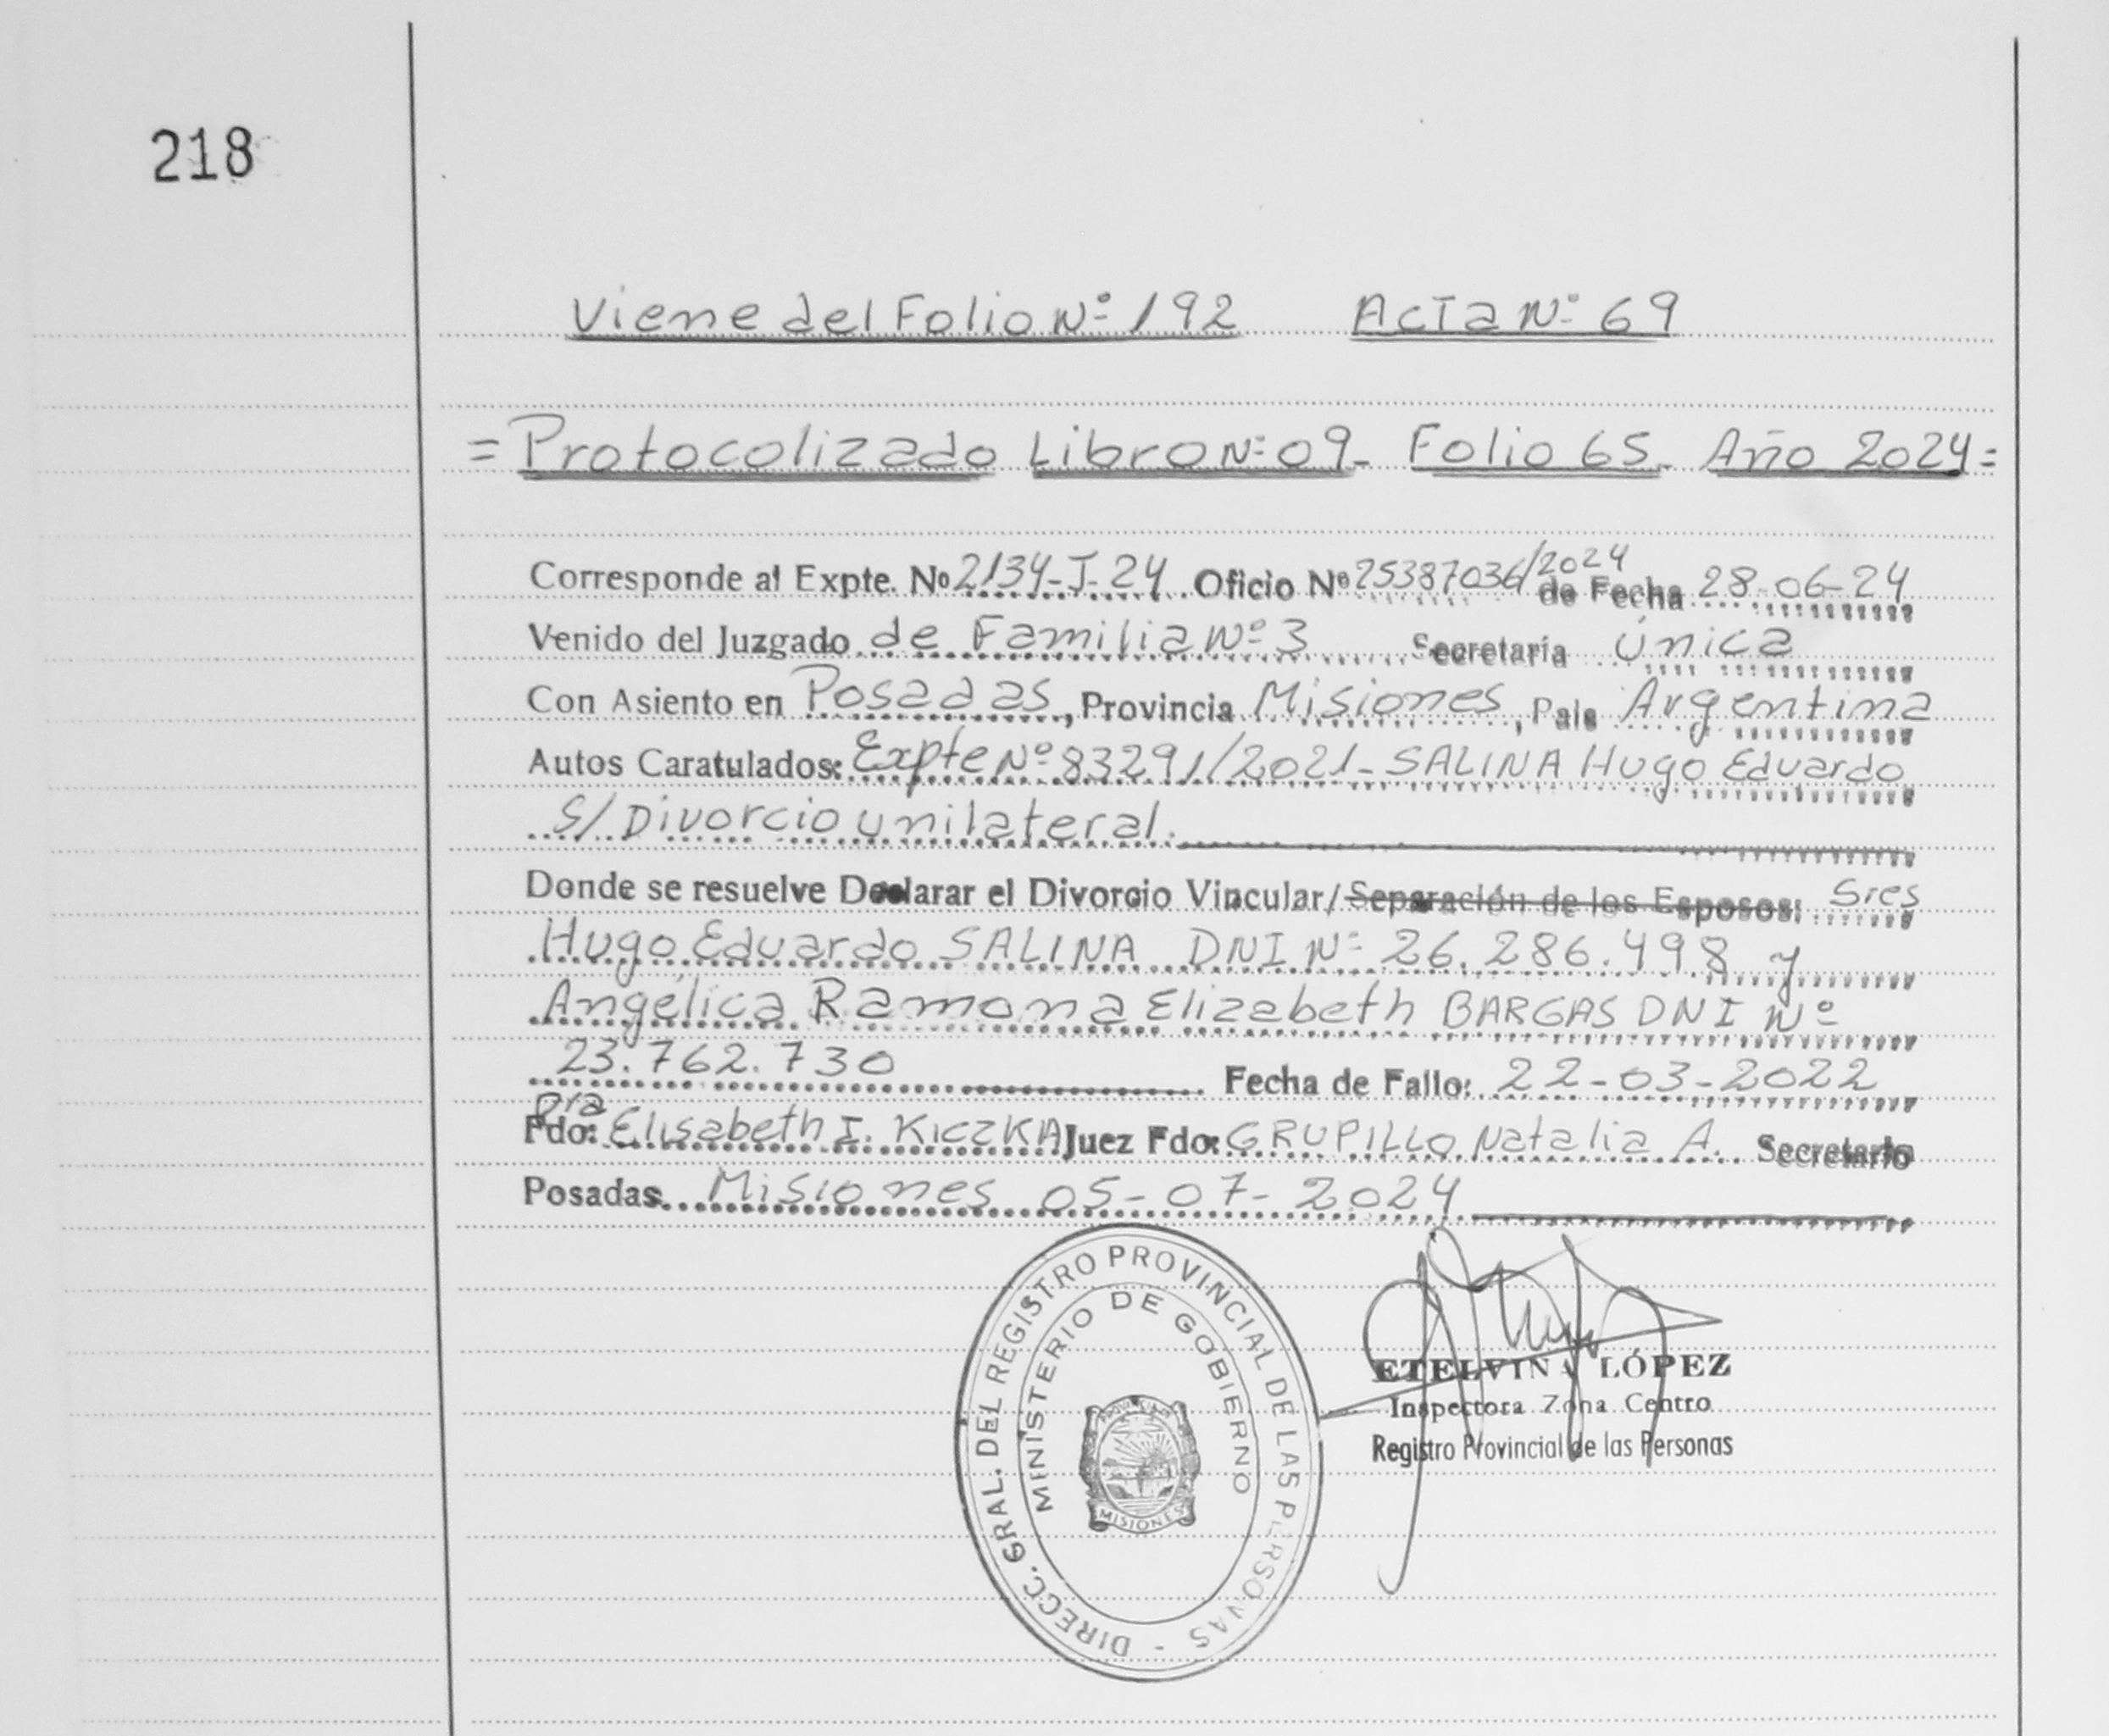 218
Viene del Folio Nº 192 Acta Nº 69
= Protocolizado Libro Nº 09- Folio 65- Año 2024 =
Corresponde al Expte. Nº 2134-J-24 Oficio Nº 25387036/2024 de Fecha 28-06-24
Venido del Juzgado de Familia Nº 3 Secretaría Única
Con Asiento en Posadas, Provincia Misiones, País Argentina
Autos Caratulados: Expte Nº 83291/2021- SALINA Hugo Eduardo
S/ Divorcio unilateral.
Donde se resuelve Declarar el Divorcio Vincular/Separación de los Esposos: Sres
Hugo Eduardo SALINA DNI Nº 26.286.498 y
Angélica Ramona Elizabeth BARGAS DNI Nº
23.762.730 Fecha de Fallo: 22-03-2022
Fdo: Dra Elisabeth I. KICZKA Juez Fdo: GRUPILLO Natalia A. Secretario
Posadas Misiones 05-07-2024
DIRECC. GRAL. DEL REGISTRO PROVINCIAL DE LAS PERSONAS -
MINISTERIO DE GOBIERNO
MISIONES
ETELVINA LÓPEZ
Inspectora Zona Centro
Registro Provincial de las Personas